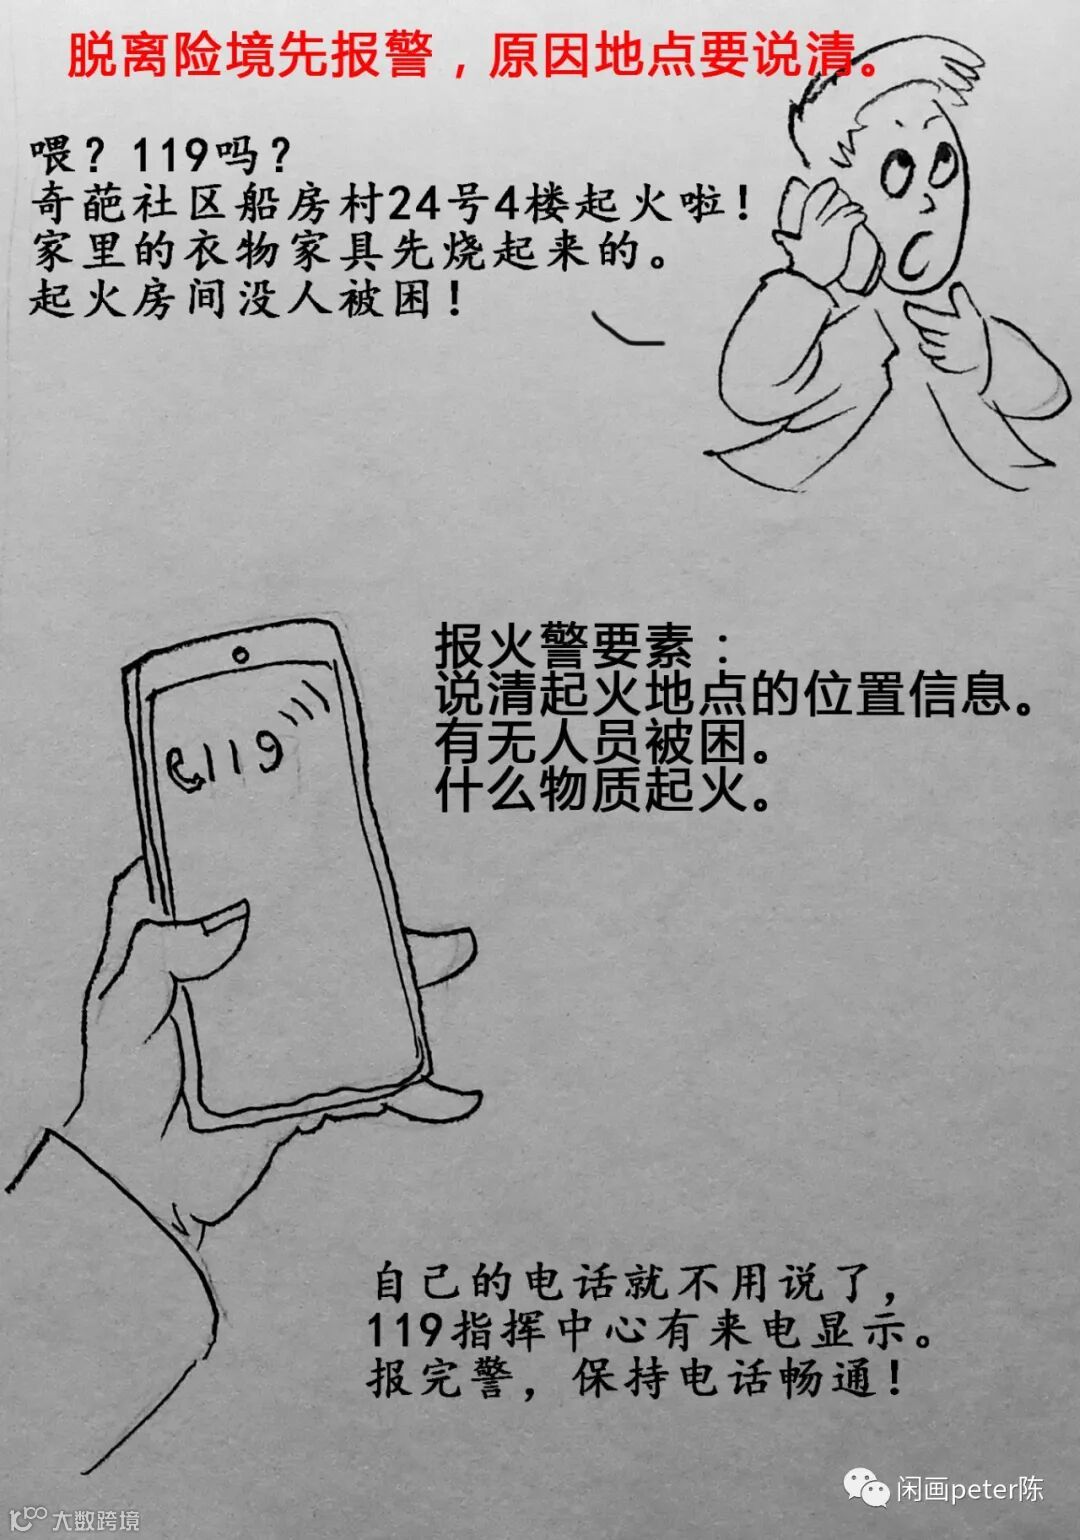 脱离险境先报警，原因地点要说清。
喂？119吗？
奇葩社区船房村24号4楼起火啦！
家里的衣物家具先烧起来的。
起火房间没人被困！
报火警要素：
说清起火地点的位置信息。
有无人员被困。
什么物质起火。
119
自己的电话就不用说了，
119指挥中心有来电显示。
报完警，保持电话畅通！
闲画peter陈
大数跨境